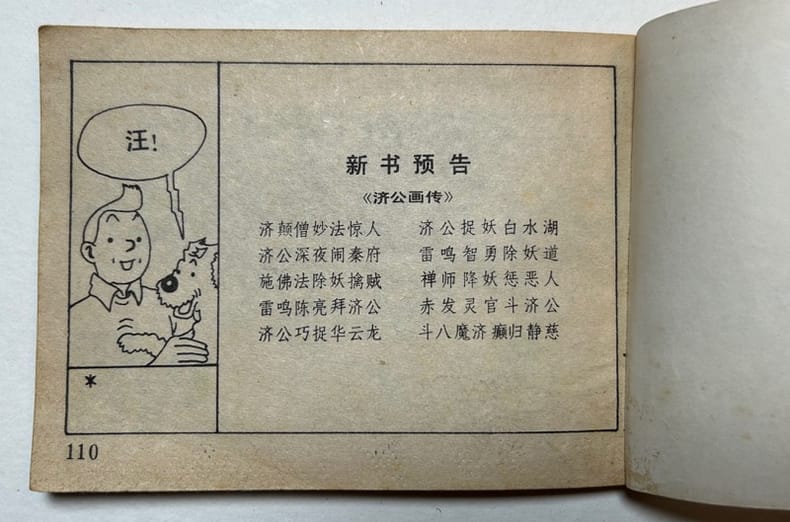 汪!
*
110
新书预告
《济公画传》
济颠僧妙法惊人
济公深夜闹秦府
施佛法除妖擒贼
雷鸣陈亮拜济公
济公巧捉华云龙
济公捉妖白水湖
雷鸣智勇除妖道
禅师降妖惩恶人
赤发灵官斗济公
斗八魔济癫归静慈